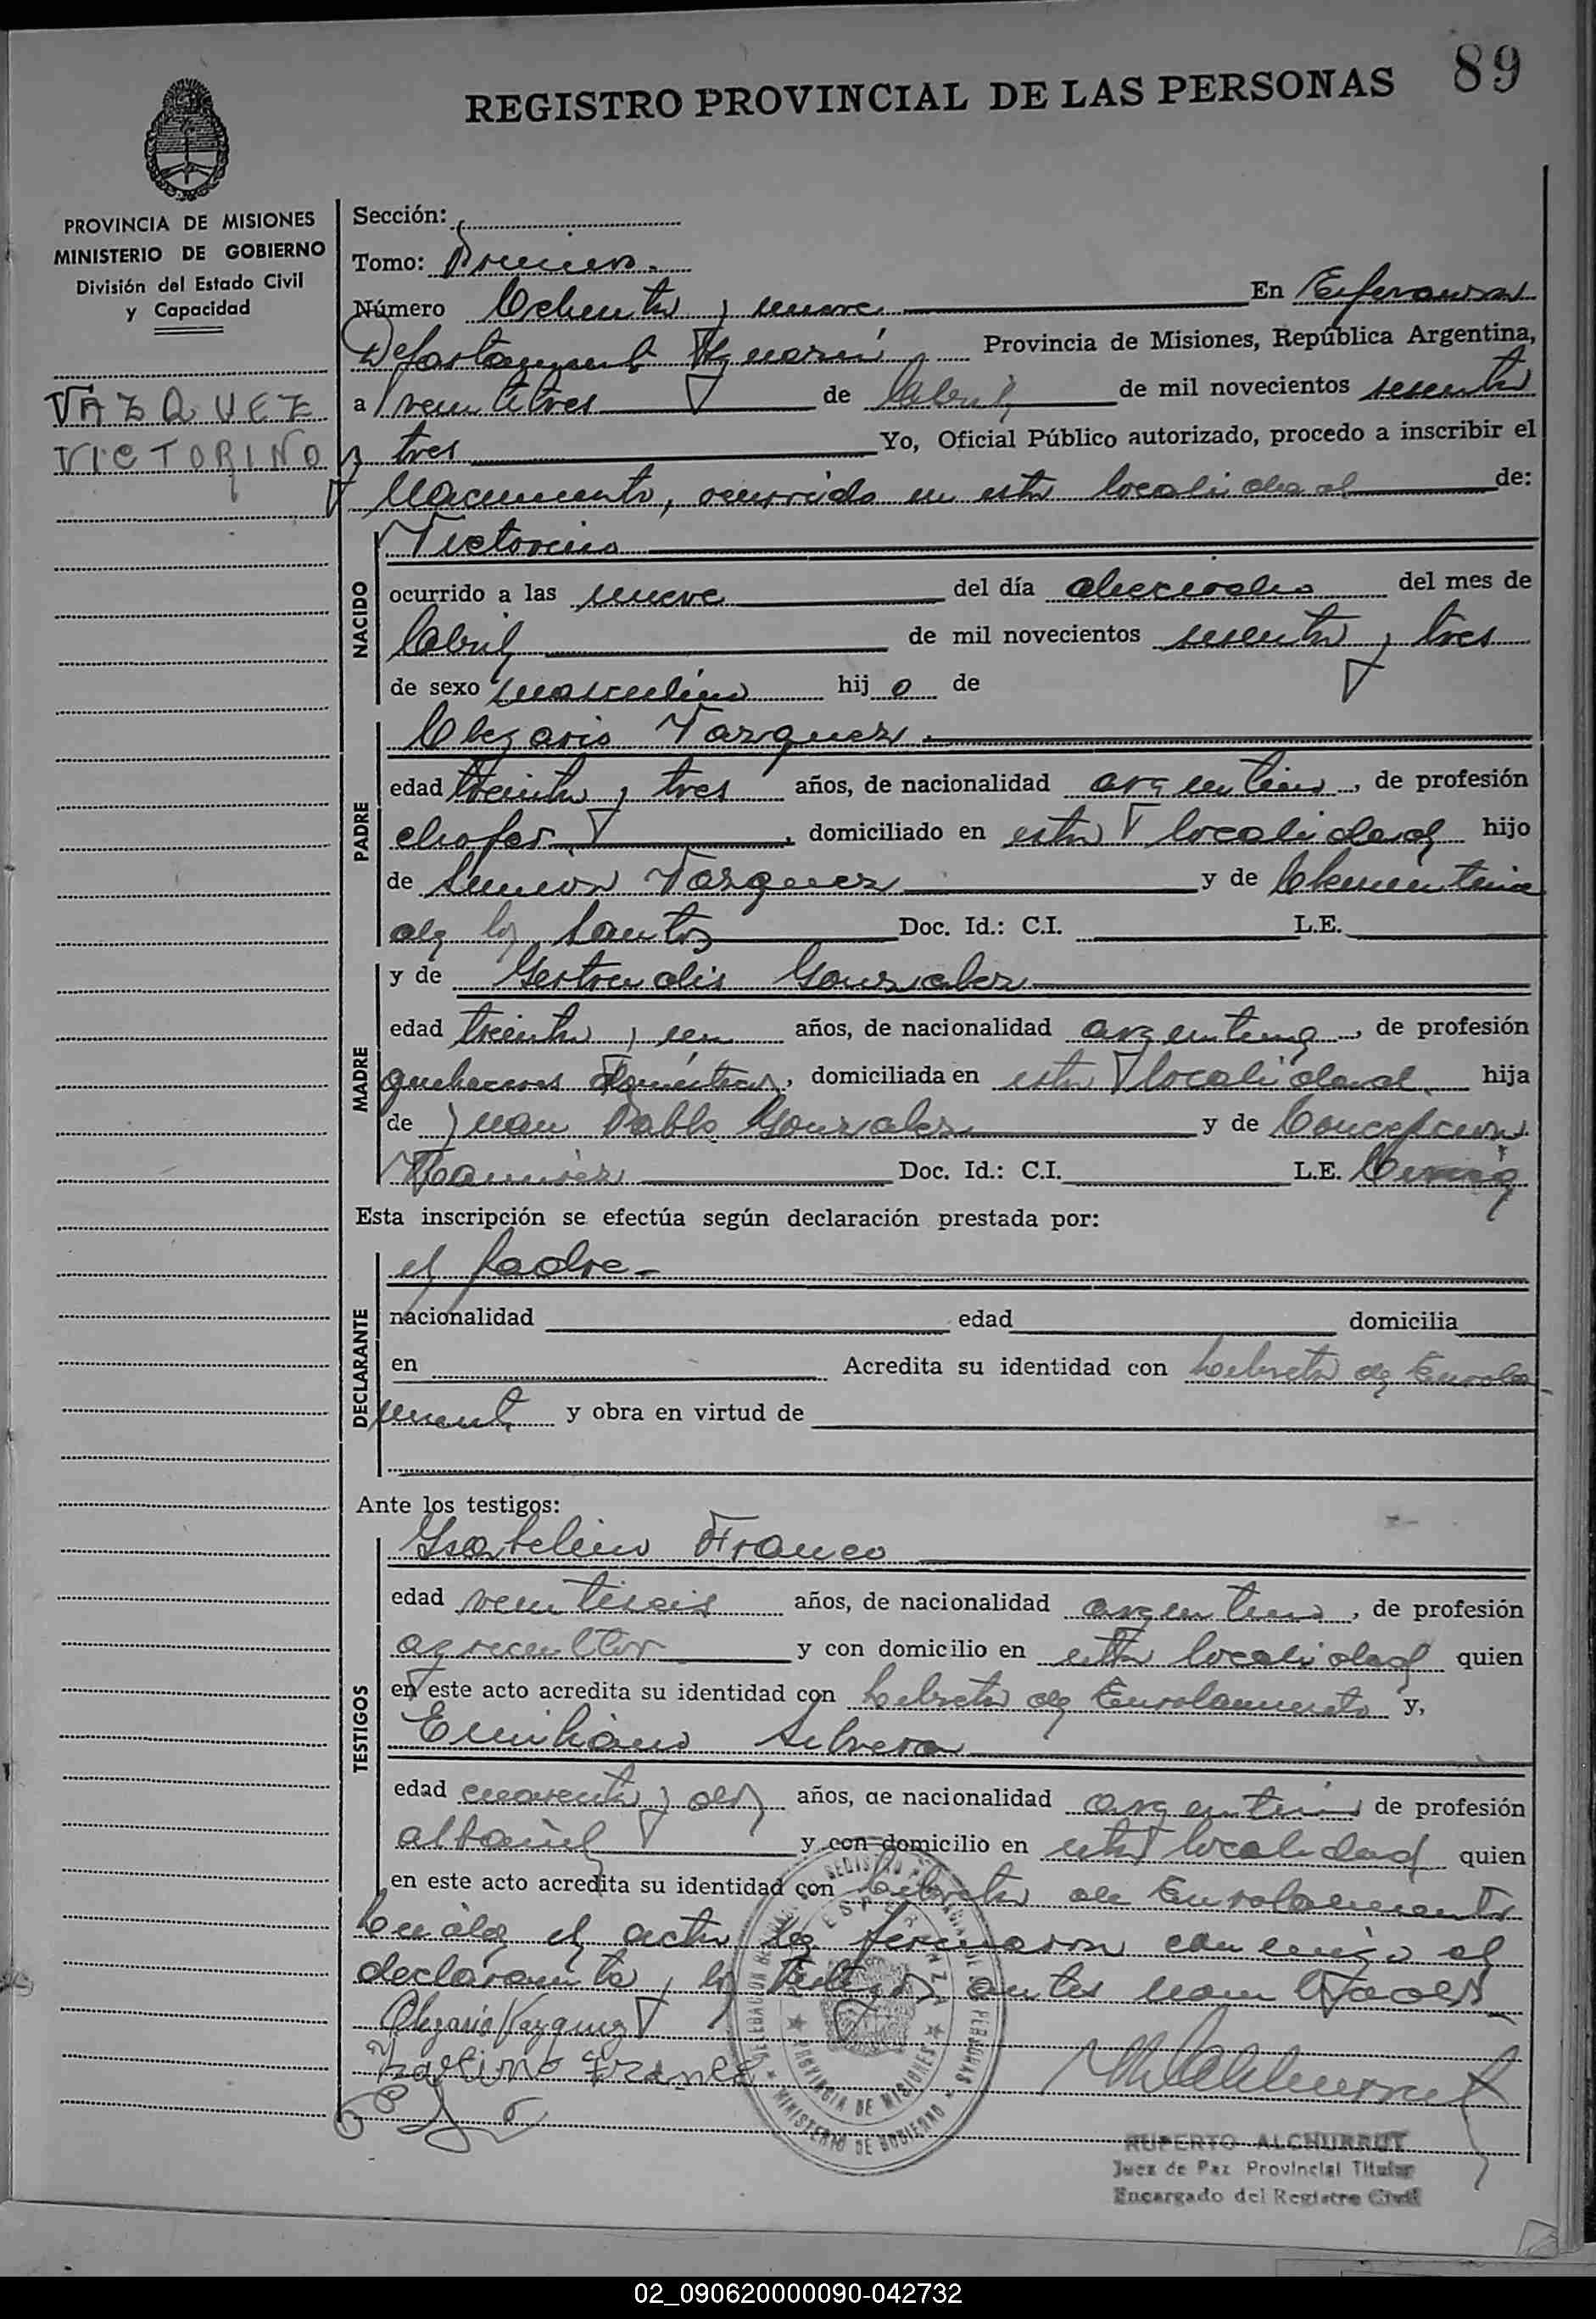 89
REGISTRO PROVINCIAL DE LAS PERSONAS
PROVINCIA DE MISIONES
MINISTERIO DE GOBIERNO
División del Estado Civil
y Capacidad
VAZQUEZ
VICTORINO
Sección:
Tomo: Primero.
Número Ochenta y nueve En Esperanza
Departamento Guaraní, Provincia de Misiones, República Argentina,
a veintitres de Abril de mil novecientos sesenta
y tres Yo, Oficial Público autorizado, procedo a inscribir el
Nacimiento, ocurrido en esta localidad de:
NACIDO
Victorino
ocurrido a las nueve del día dieciocho del mes de
Abril de mil novecientos sesenta y tres
de sexo masculino hijo de
PADRE
Olegario Vazquez.
edad treinta y tres años, de nacionalidad argentino, de profesión
chofer, domiciliado en esta localidad hijo
de Simeon Vazquez y de Clementina
de los Santos Doc. Id.: C.I. L.E.
MADRE
y de Gertrudis Gonzalez
edad treinta y un años, de nacionalidad argentina, de profesión
quehaceres domésticos, domiciliada en esta localidad hija
de Juan Pablo Gonzalez y de Concepcion
Ramirez Doc. Id.: C.I. L.E.
Esta inscripción se efectúa según declaración prestada por:
DECLARANTE
el padre-
nacionalidad edad domicilia
en Acredita su identidad con Libreta de Enrola
miento y obra en virtud de
Ante los testigos:
TESTIGOS
Isabelino Franco
edad veintiseis años, de nacionalidad argentino, de profesión
agricultor y con domicilio en esta localidad quien
en este acto acredita su identidad con Libreta de Enrolamiento y,
Emiliano Silvera
edad cuarenta y dos años, de nacionalidad argentino de profesión
albañil y con domicilio en esta localidad quien
en este acto acredita su identidad con Libreta de Enrolamiento
Leída el acta la firmaron conmigo el
declarante y los testigos antes nombrados
Olegario Vazquez
Franco
ESPERANZA
PROVINCIA DE MISIONES
MINISTERIO DE GOBIERNO
RUPERTO ALCHURRUT
Juez de Paz Provincial Titular
Encargado del Registro Civil
02_090620000090-042732